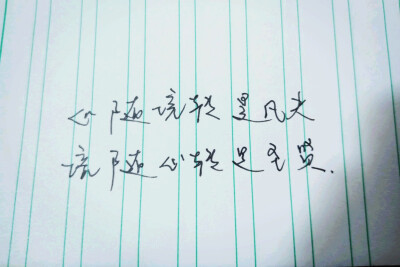 心随境转是凡夫
境随心转是圣贤.